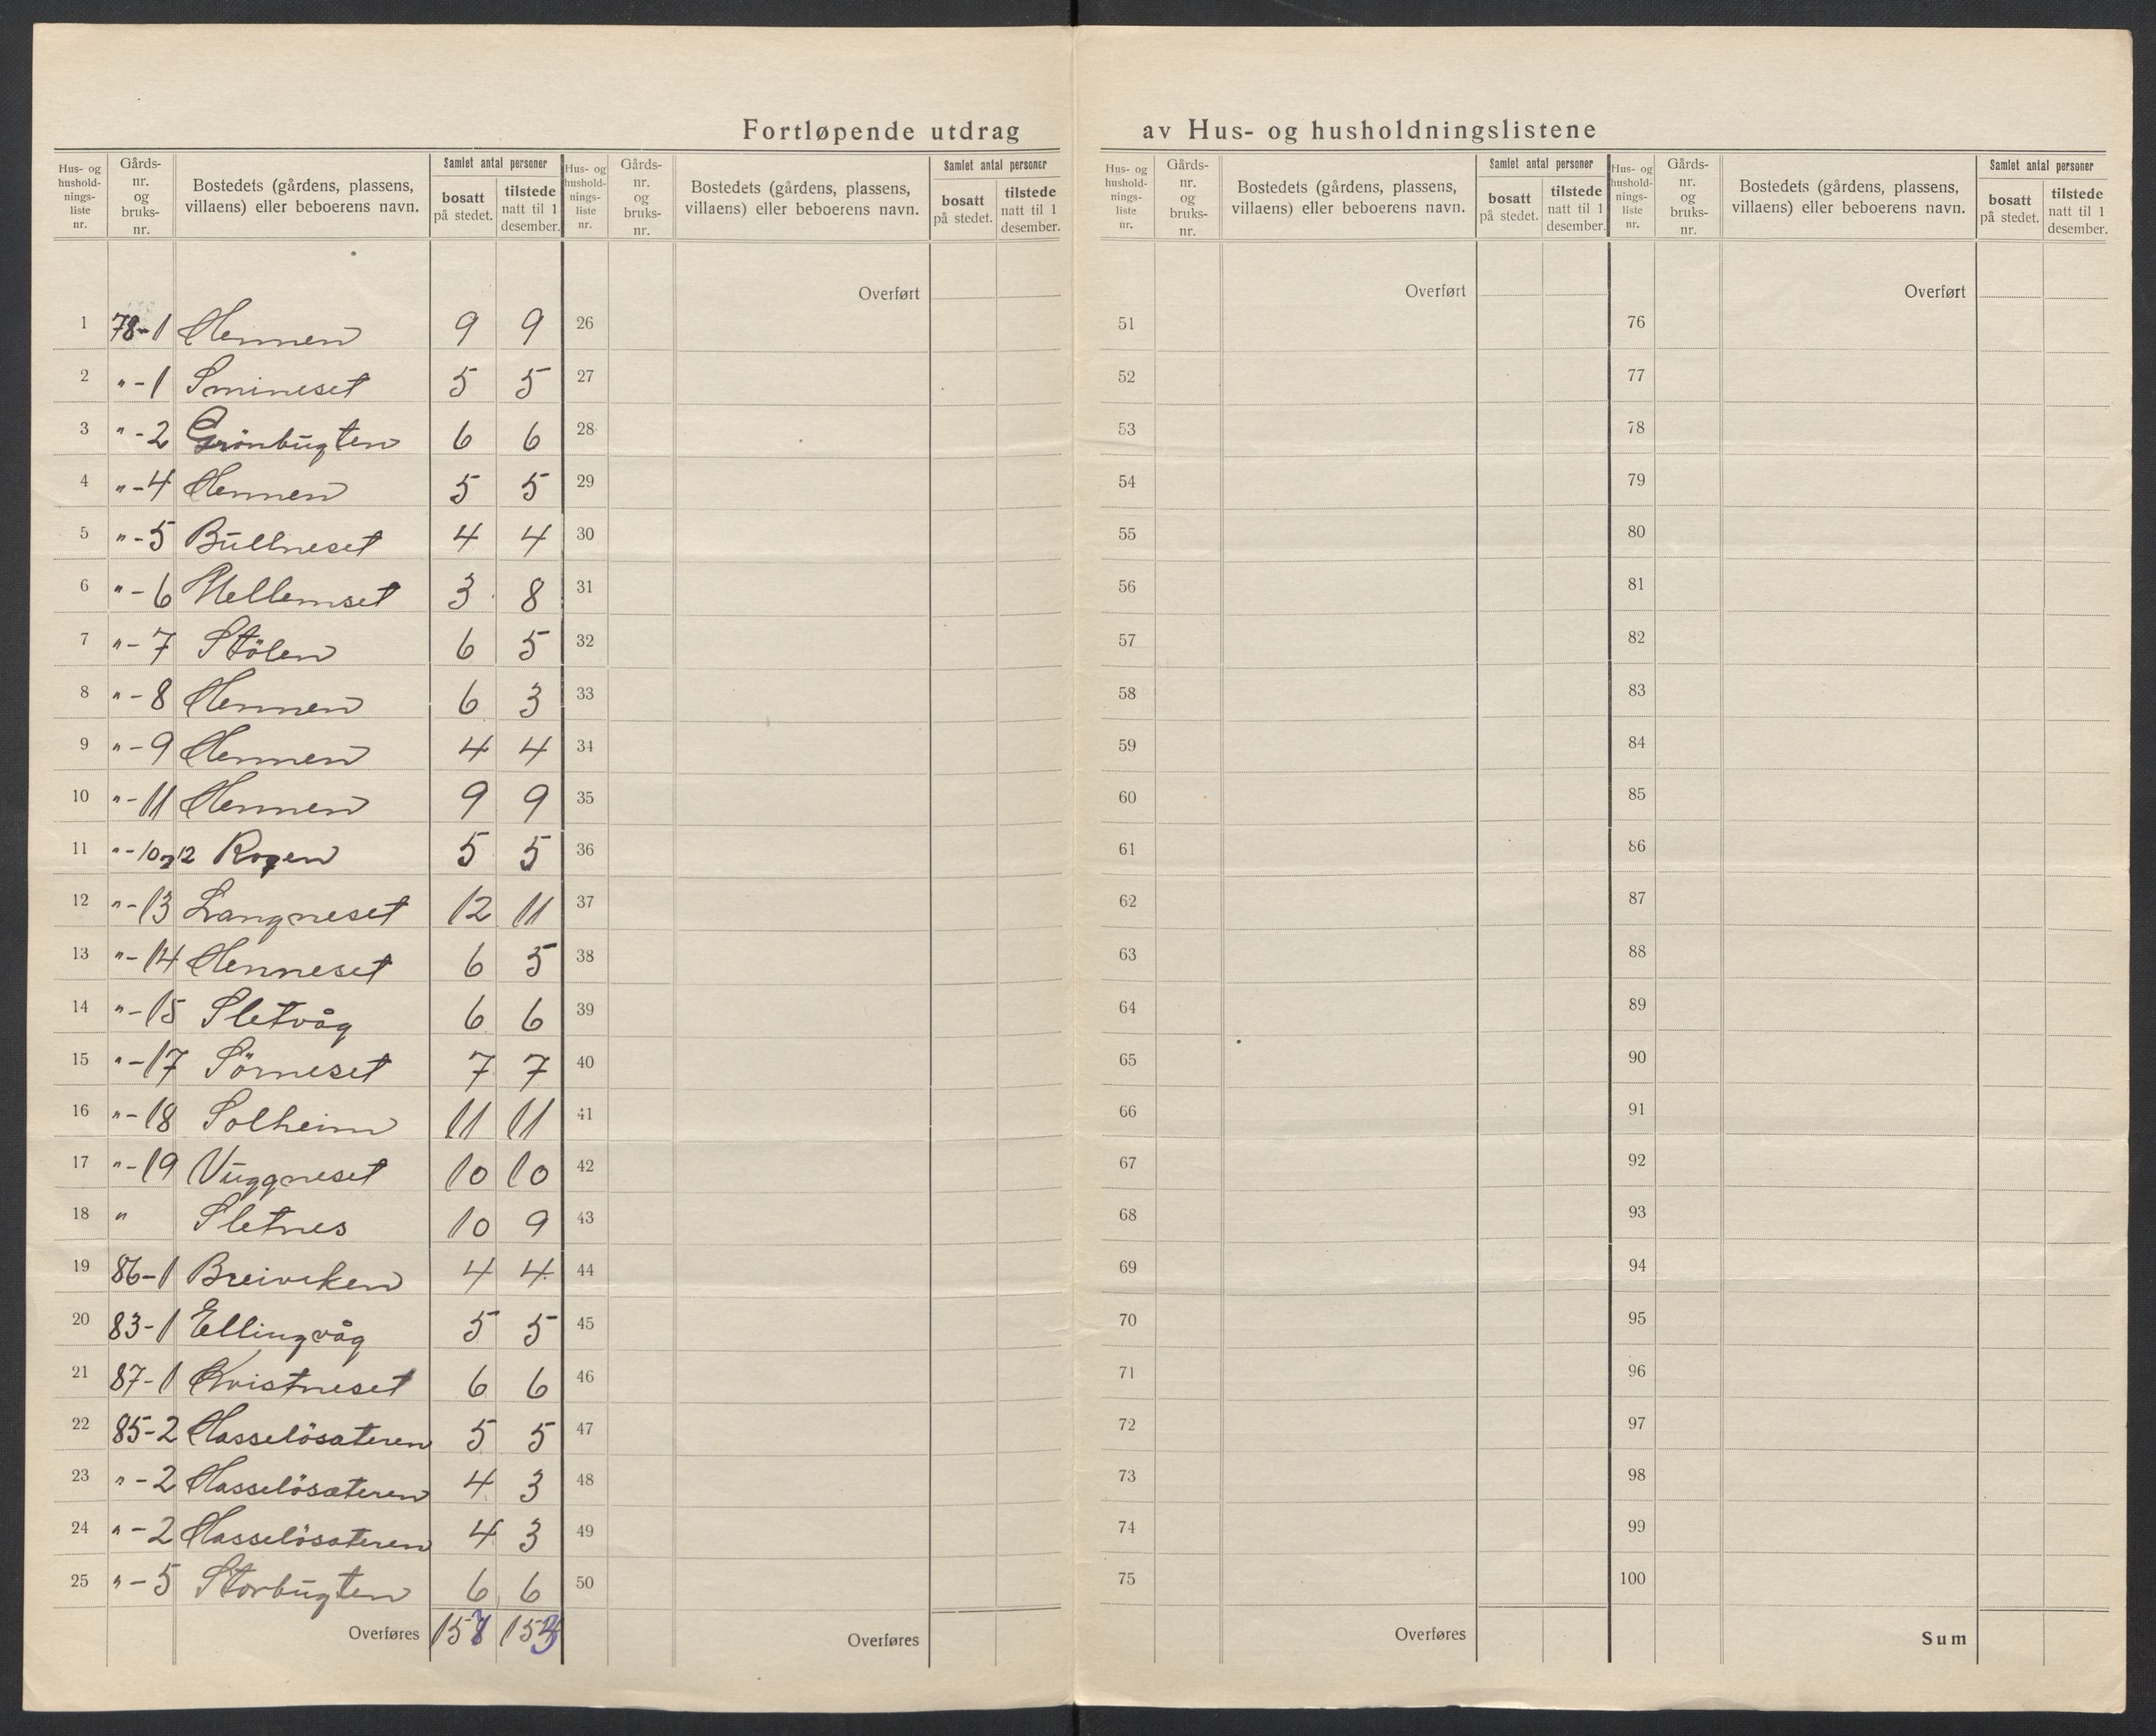 Fortløpende utdrag av Hus- og husholdningslistene
Hus- og hushold- nings- liste nr. | Gårds- nr. og bruks- nr. | Bostedets (gårdens, plassens, villaens) eller beboerens navn. | Samlet antal personer | bosatt på stedet. | tilstede natt til 1 desember.
Hus- og hushold- nings- liste nr. | Gårds- nr. og bruks- nr. | Bostedets (gårdens, plassens, villaens) eller beboerens navn. | Samlet antal personer | bosatt på stedet. | tilstede natt til 1 desember.
Hus- og hushold- nings- liste nr. | Gårds- nr. og bruks- nr. | Bostedets (gårdens, plassens, villaens) eller beboerens navn. | Samlet antal personer | bosatt på stedet. | tilstede natt til 1 desember.
Hus- og hushold- nings- liste nr. | Gårds- nr. og bruks- nr. | Bostedets (gårdens, plassens, villaens) eller beboerens navn. | Samlet antal personer | bosatt på stedet. | tilstede natt til 1 desember.
Overført Overført Overført
1 78-1 Hennen 9 9 26 51 76
2 "-1 Smineset 5 5 27 52 77
3 "-2 Grönbugten 6 6 28 53 78
4 "-4 Hennen 5 5 29 54 79
5 "-5 Bullneset 4 4 30 55 80
6 "-6 Mellemset 3 8 31 56 81
7 "-7 Stölen 6 5 32 57 82
8 "-8 Hennen 6 3 33 58 83
9 "-9 Hennen 4 4 34 59 84
10 "-11 Hennen 9 9 35 60 85
11 "-10 12 5 5 36 61 86
12 "-13 Langneset 12 11 37 62 87
13 "-14 Henneset 6 5 38 63 88
14 "-15 Sletvåg 6 6 39 64 89
15 "-17 Sörneset 7 7 40 65 90
16 "-18 Solheim 11 11 41 66 91
17 "-19 Vuggneset 10 10 42 67 92
18 " Sletnes 10 9 43 68 93
19 86-1 Breiviken 4 4 44 69 94
20 83-1 Ellingvåg 5 5 45 70 95
21 87-1 Kvistneset 6 6 46 71 96
22 85-2 Hasselösateren 5 5 47 72 97
23 "-2 Hasselösæteren 4 3 48 73 98
24 "-2 Hasselösateren 4 3 49 74 99
25 "-5 Storbugten 6 6 50 75 100
Overføres 153 Overføres Overføres Sum